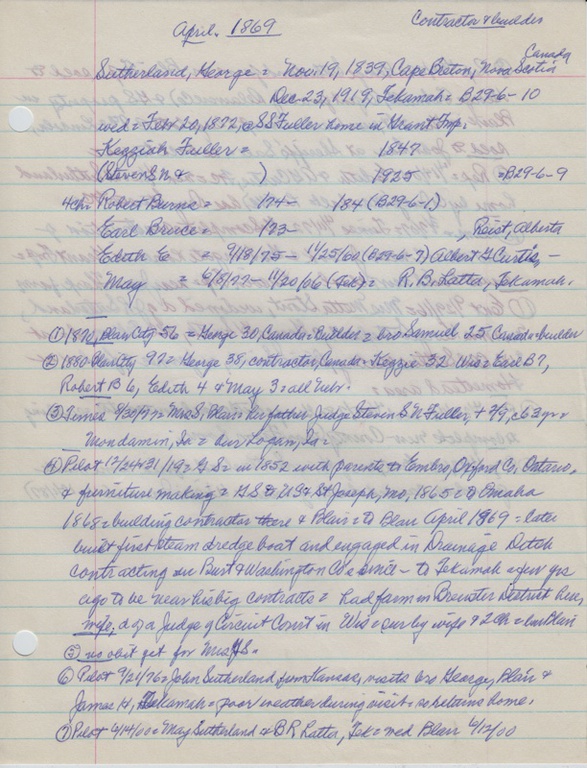 April. 1869
Contractor & builder
Canada
Sutherland, George = Nov. 19, 1839, Cape Breton, Nova Scotia
Dec. 23, 1919, Tekamah = B29-6-10
wed = Feb 20, 1872, @ SS Fuller home in Grant Twp.
Kezziah Fuller = 1847
(Steven S N & ) 1925 = B29-6-9
4ch = Robert Burns = 174 - 184 (B29-6-1)
Earl Bruce = 173 - , Reist, Alberta
Edith E = 9/8/75 - 11/25/60 (B29-6-7) Albert G Curtis, -
May = 6/8/77 - 11/20/06 (Tek) = R. B. Latta, Tekamah.
① 1870, Blair City 56 = George 30, Canada = Builder = bro Samuel 25 Canada = builder
② 1880 Blair City 92 = George 38, contractor, Canada = Kezzie 32 Wis = Earl B 7,
Robert B 6, Edith 4 & May 3 = all Nebr.
③ Times = Mrs S, Blair = her father Judge Steven S N Fuller, + 2/9, c 63 yr =
Mondamin, Ia = bur Logan, Ia =
④ Pilot 12/24 & 31/19 = G S = in 1852 with parents to Embro, Oxford Co, Ontario,
& furniture making = G S to US & St Joseph, Mo, 1865 = to Omaha
1868 = building contractor there & Blair = to Blair April 1869 = later
built first steam dredge boat and engaged in Drainage Ditch
contracting in Burt & Washington Co's since - to Tekamah a few yrs
ago to be near his big contracts = had farm in Brewster District here,
wife, d of a Judge of Circuit Court in Wis = sur by wife & 2 ch = bur Blair
⑤ no obit get for Mrs G S.
⑥ Pilot 9/21/76 = John Sutherland, from Kansas, visits bro George, Blair &
James H, Tekamah = poor weather during visit = so returns home.
⑦ Pilot 6/14/00 = May Sutherland & B R Latta, Tek = wed Blair 6/12/00